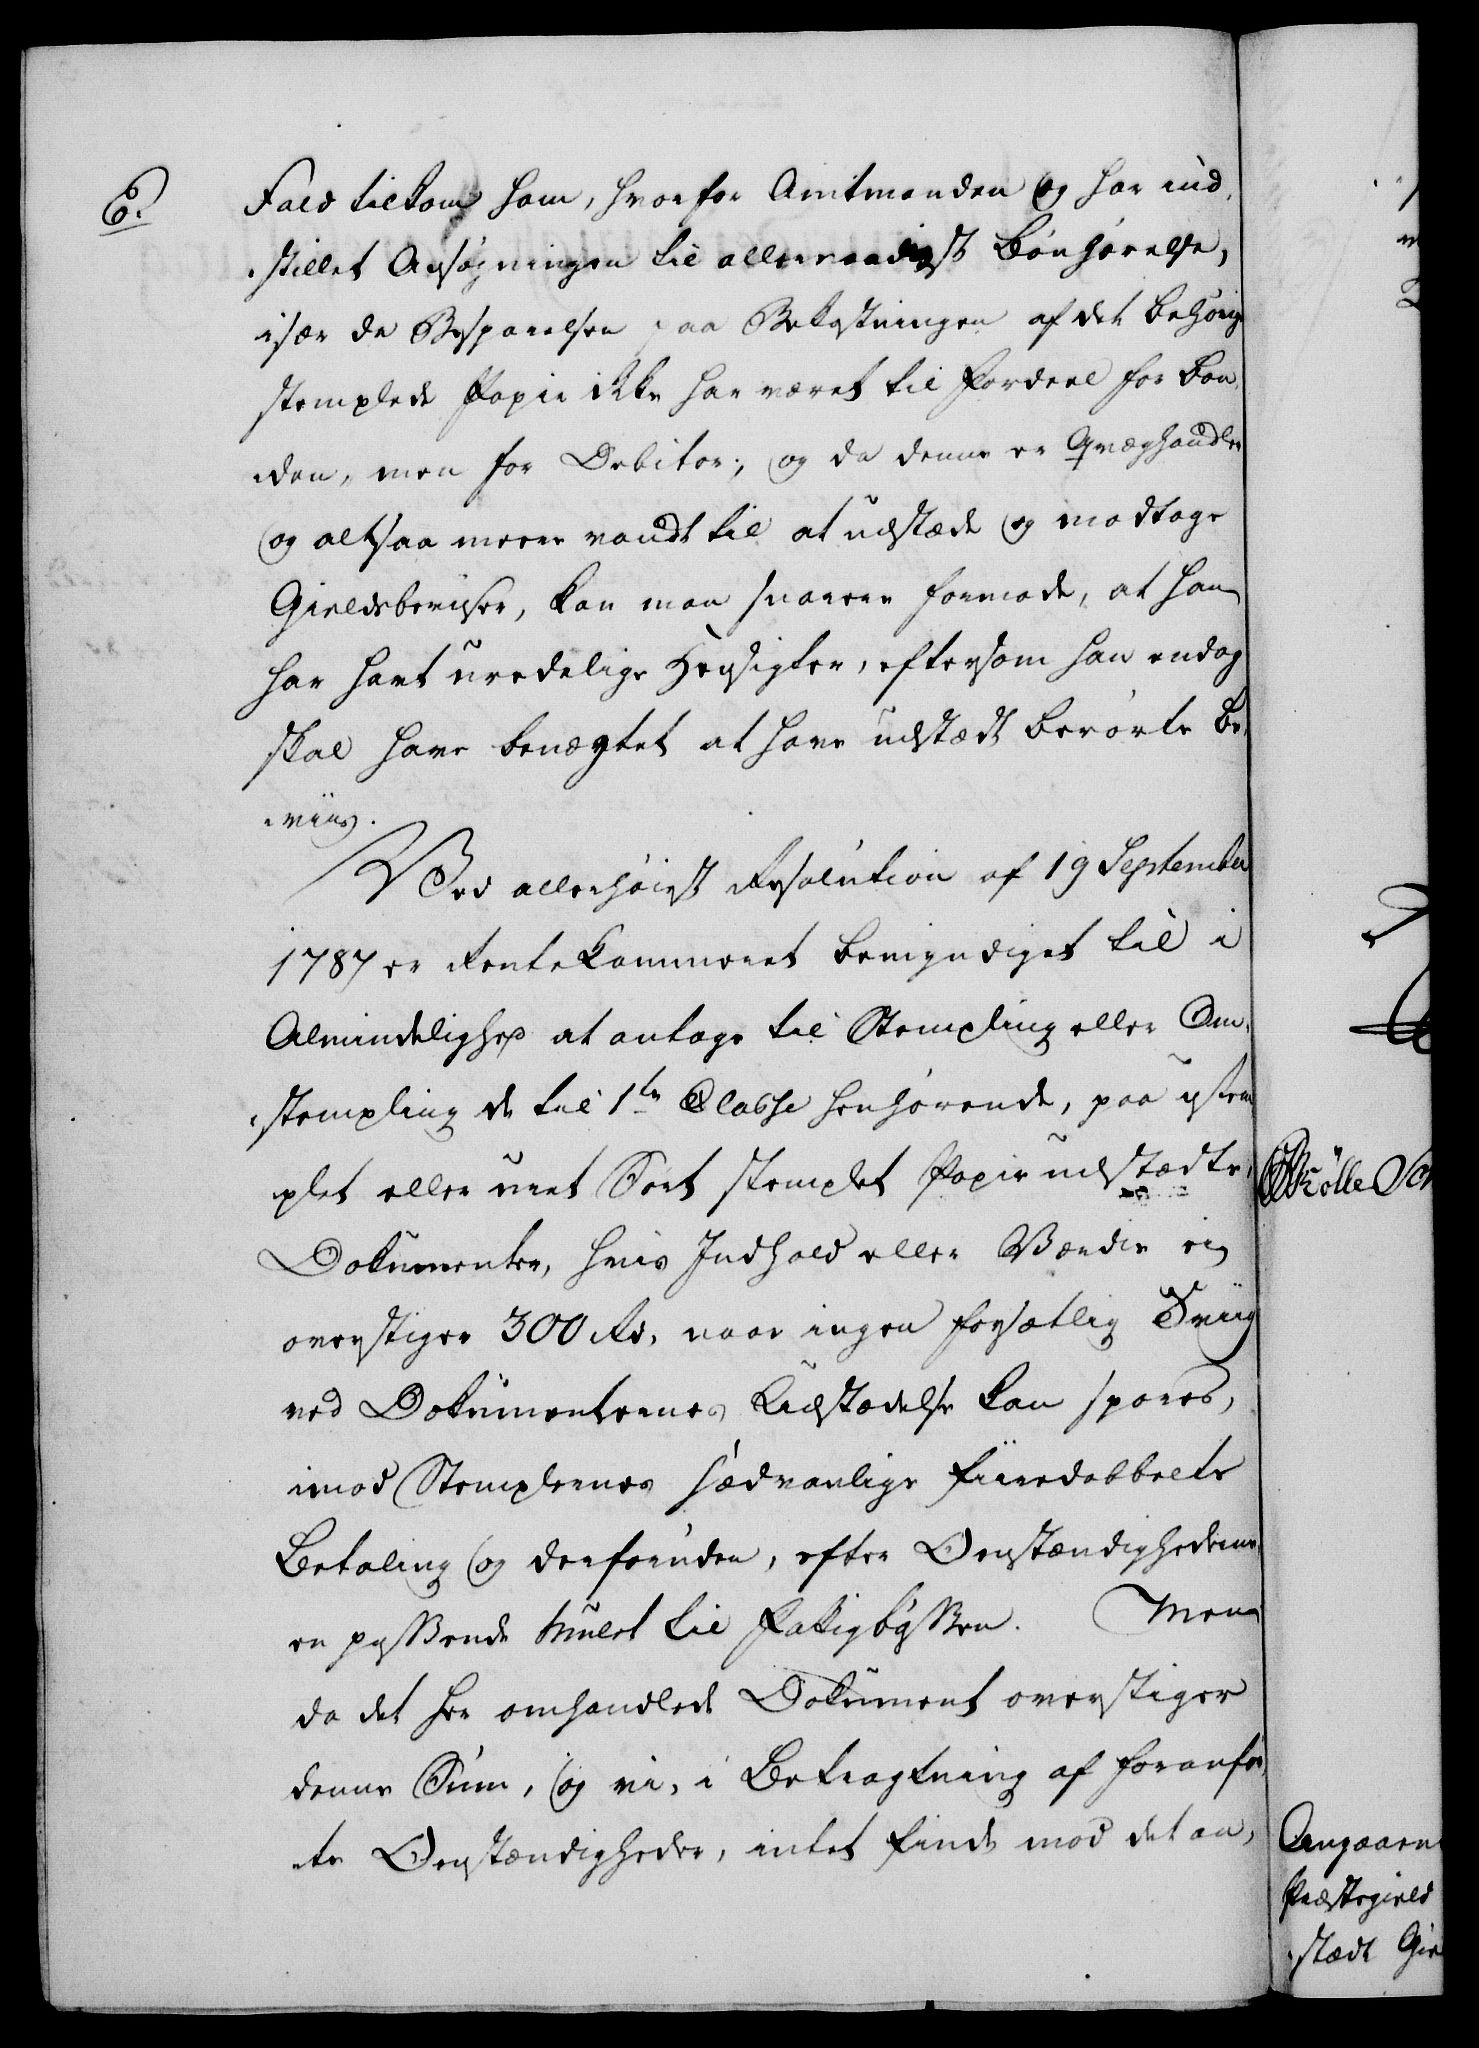 6.
Fald tilkom ham, hvorfor Amtmanden og har ind,
,stillet Ansøgningen til allernaadigst Bønhørelse,
især da Besparelsen paa Bekostningen af det behørig
stemplede Papir ikke har været til Fordeel for Bon,
,den, men for Debitor; og da denne er Qvæghandler
og altsaa meere vandt til at udstæde og modtage
Gieldsbeviser, kan man snarere formode, at han
har havt uredelige Hensigter, eftersom han endog
skal have benægtet at have udstædt berørte Be,
,viis.
Ved allerhøiest Resolution af 19 September
1787 er Rentekammeret bemyndiget til i
Almindelighed at antage til Stempling eller Om,
,stempling de til 1te Classe henhørende, paa ustem
plet eller uret Sort stemplet Papir udstædte
Dokumenter, hvis Indhold eller Værdie ei
overstiger 300 Rd, naar ingen forsætlig Sviig
ved Dokumenternes Udstædelse kan spores,
imod Stemplernes sædvanlige fiiredobbelte
Betaling og derforuden, efter Omstændighederne
en passende Mulct til Fattigbøssen. Men
da det her omhandlede Dokument overstiger
denne Sum, og vi, i Betragtning af foranfør,
,te Omstændigheder, intet finde mod det an,
Angaaen
Præstegield
,stædt Gie